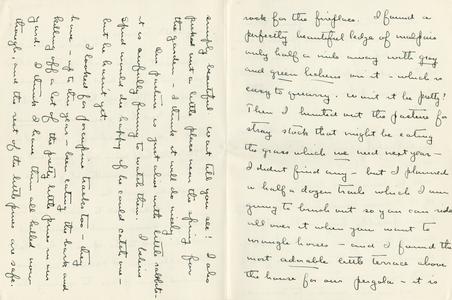 rock for the fireplace. I found a
perfectly beautiful ledge of malpais
only half a mile away with gray
and green lichens on it - which is
easy to quarry. Won't it be pretty!
Then I hunted out the pasture for
stray stock that might be eating
the grass which we need next year -
I didnt find any - but I planned
a half a dozen trails which I am
going to brush out so you can ride
all over it when you want to
wrangle horses - and I found the
most adorable little terrace above
the house for our pergola - it is
simply beautiful wait till you see! I also
picked out a little place near the spring for
the garden - I think it will do nicely
Our pasture is just alive with little rabbits.
it is awfully funny to watch them. I believe
Spud would die happy if he could catch one -
but he hasn't yet.
I looked for porcupine tracks too - they
have - up to this year - been eating the bark and
killing off a lot of the pretty little pines in our
yard. I think I have them all killed now
though, and the rest of the little pines are safe.